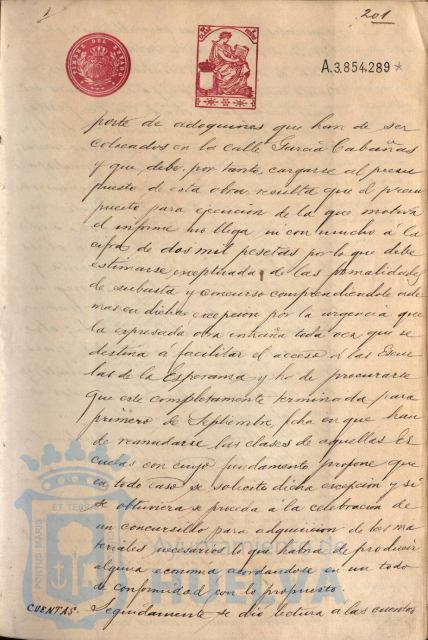 201
TIMBRE DEL ESTADO
A.3.854.289
porte de adoquines que han de ser
colocados en la calle Garcia Cabañas
y que, debe, por tanto, cargarse al presu
puesto de esta obra, resulta que el presu
puesto para ejecucion de la que motiva
el informe no llega ni con mucho á la
cifra de dos mil pesetas por lo que debe
estimarse exceptuada de las formalidades
de subasta y concurso comprendiendole ade
mas en dicha excepcion por la urgencia que
la expresada obra entraña toda vez que se
destina á facilitar el acceso á las Escue
las de la Esperanza y ha de procurarse
que este completamente terminada para
primero de Septiembre, fecha en que han
de reanudarse las clases de aquellas Es
cuelas con cuyo fundamento propone que
en todo caso se solicite dicha excepcion y si
se obtuviera se proceda á la celebracion de
un concursillo para adquisicion de los ma
teriales necesarios lo que habria de producir
alguna economia acordandose en un todo
de conformidad con lo propuesto
CUENTAS. Seguidamente se dio lectura a las cuentas
PORTUS MARIS ET TERRAE
Ayuntamiento de
HUELVA